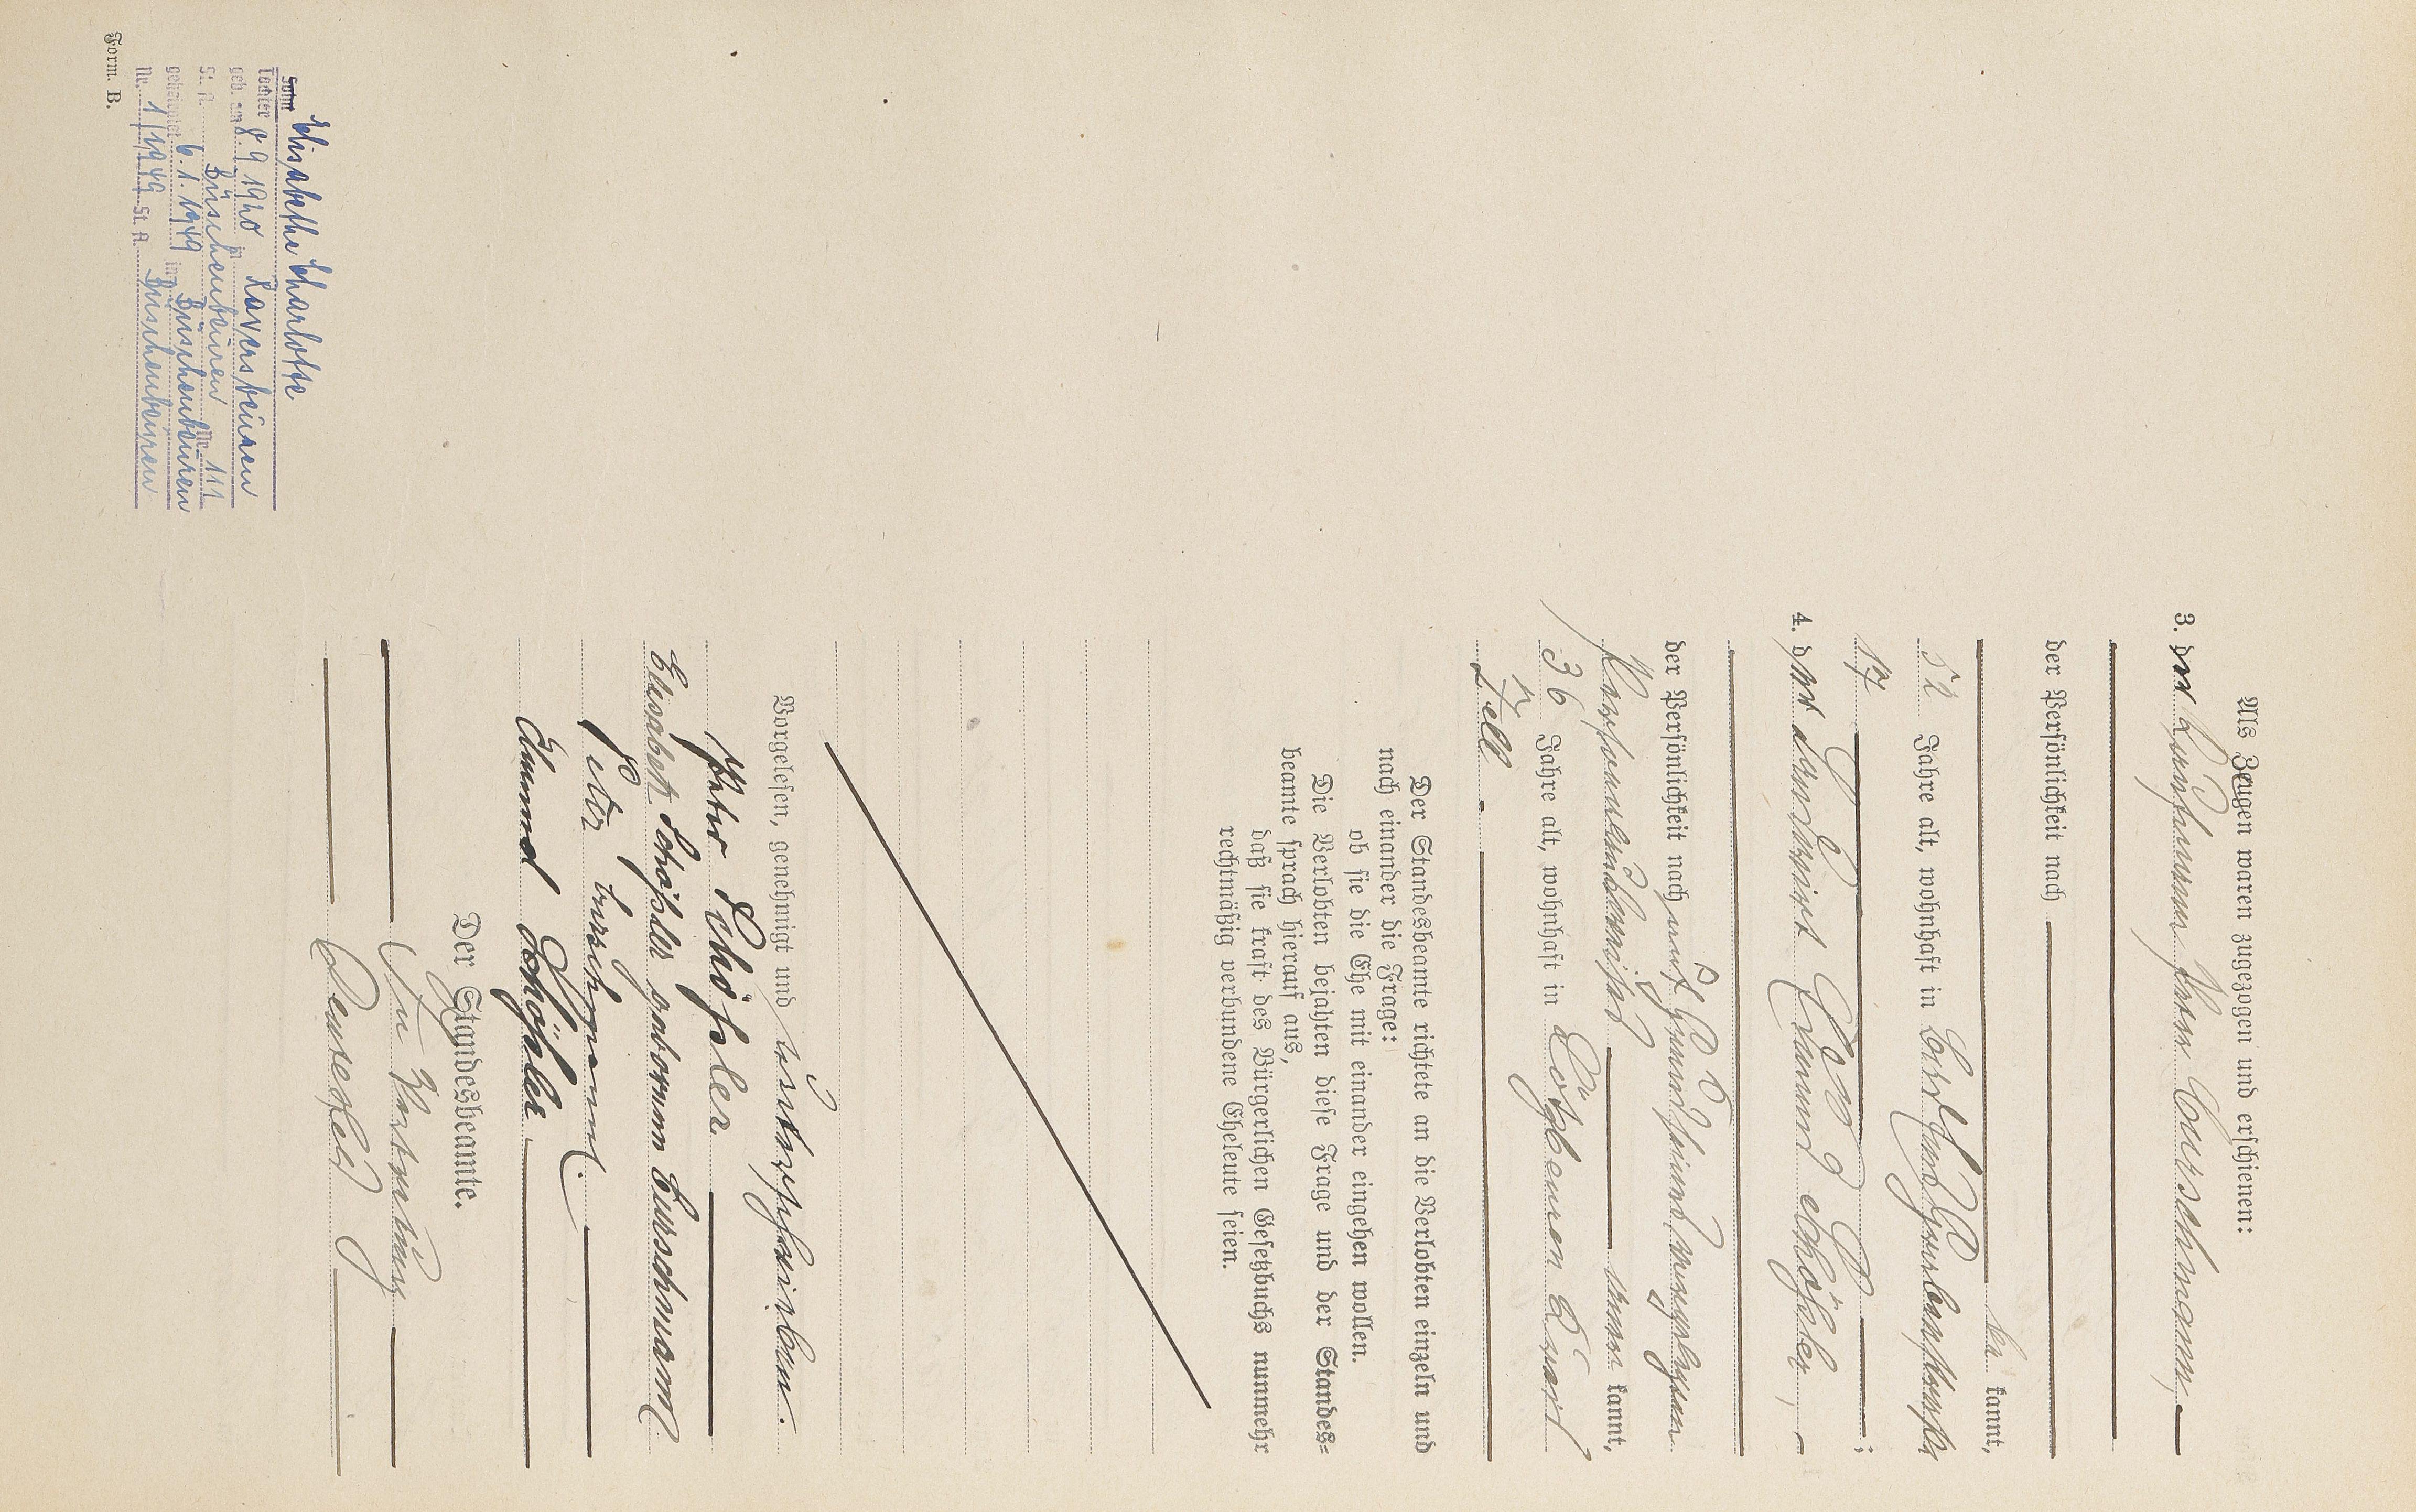 Als Zeugen waren zugezogen und erschienen:
3. der Kaufmann Peter Curschmann,
der Persönlichkeit nach
kannt,
52 Jahre alt, wohnhaft in
17
4. der Landwirt Edmund Schößler,
der Persönlichkeit nach auf Grund seines vorgelegten
kannt,
36 Jahre alt, wohnhaft in Lötzbeuren Kreis
Zell
Der Standesbeamte richtete an die Verlobten einzeln und
nach einander die Frage:
ob sie die Ehe mit einander eingehen wollen.
Die Verlobten bejahten diese Frage und der Standes-
beamte sprach hierauf aus,
daß sie kraft des Bürgerlichen Gesetzbuchs nunmehr
rechtmäßig verbundene Eheleute seien.
Vorgelesen, genehmigt und unterschrieben.
Peter Schößler
Elisabeth Schößler geborene Curschmann
Peter Curschmann.
Edmund Schößler
Der Standesbeamte.
In Vertretung
Sohn Elisabethe Charlotte
Tochter
geb. am 8.9.1920 in Raversbeuren
St. A. Büchenbeuren Nr. 111
geheiratet 6.1.1949 in Büchenbeuren
Nr. 1/1949 St. A. Büchenbeuren
Form. B.